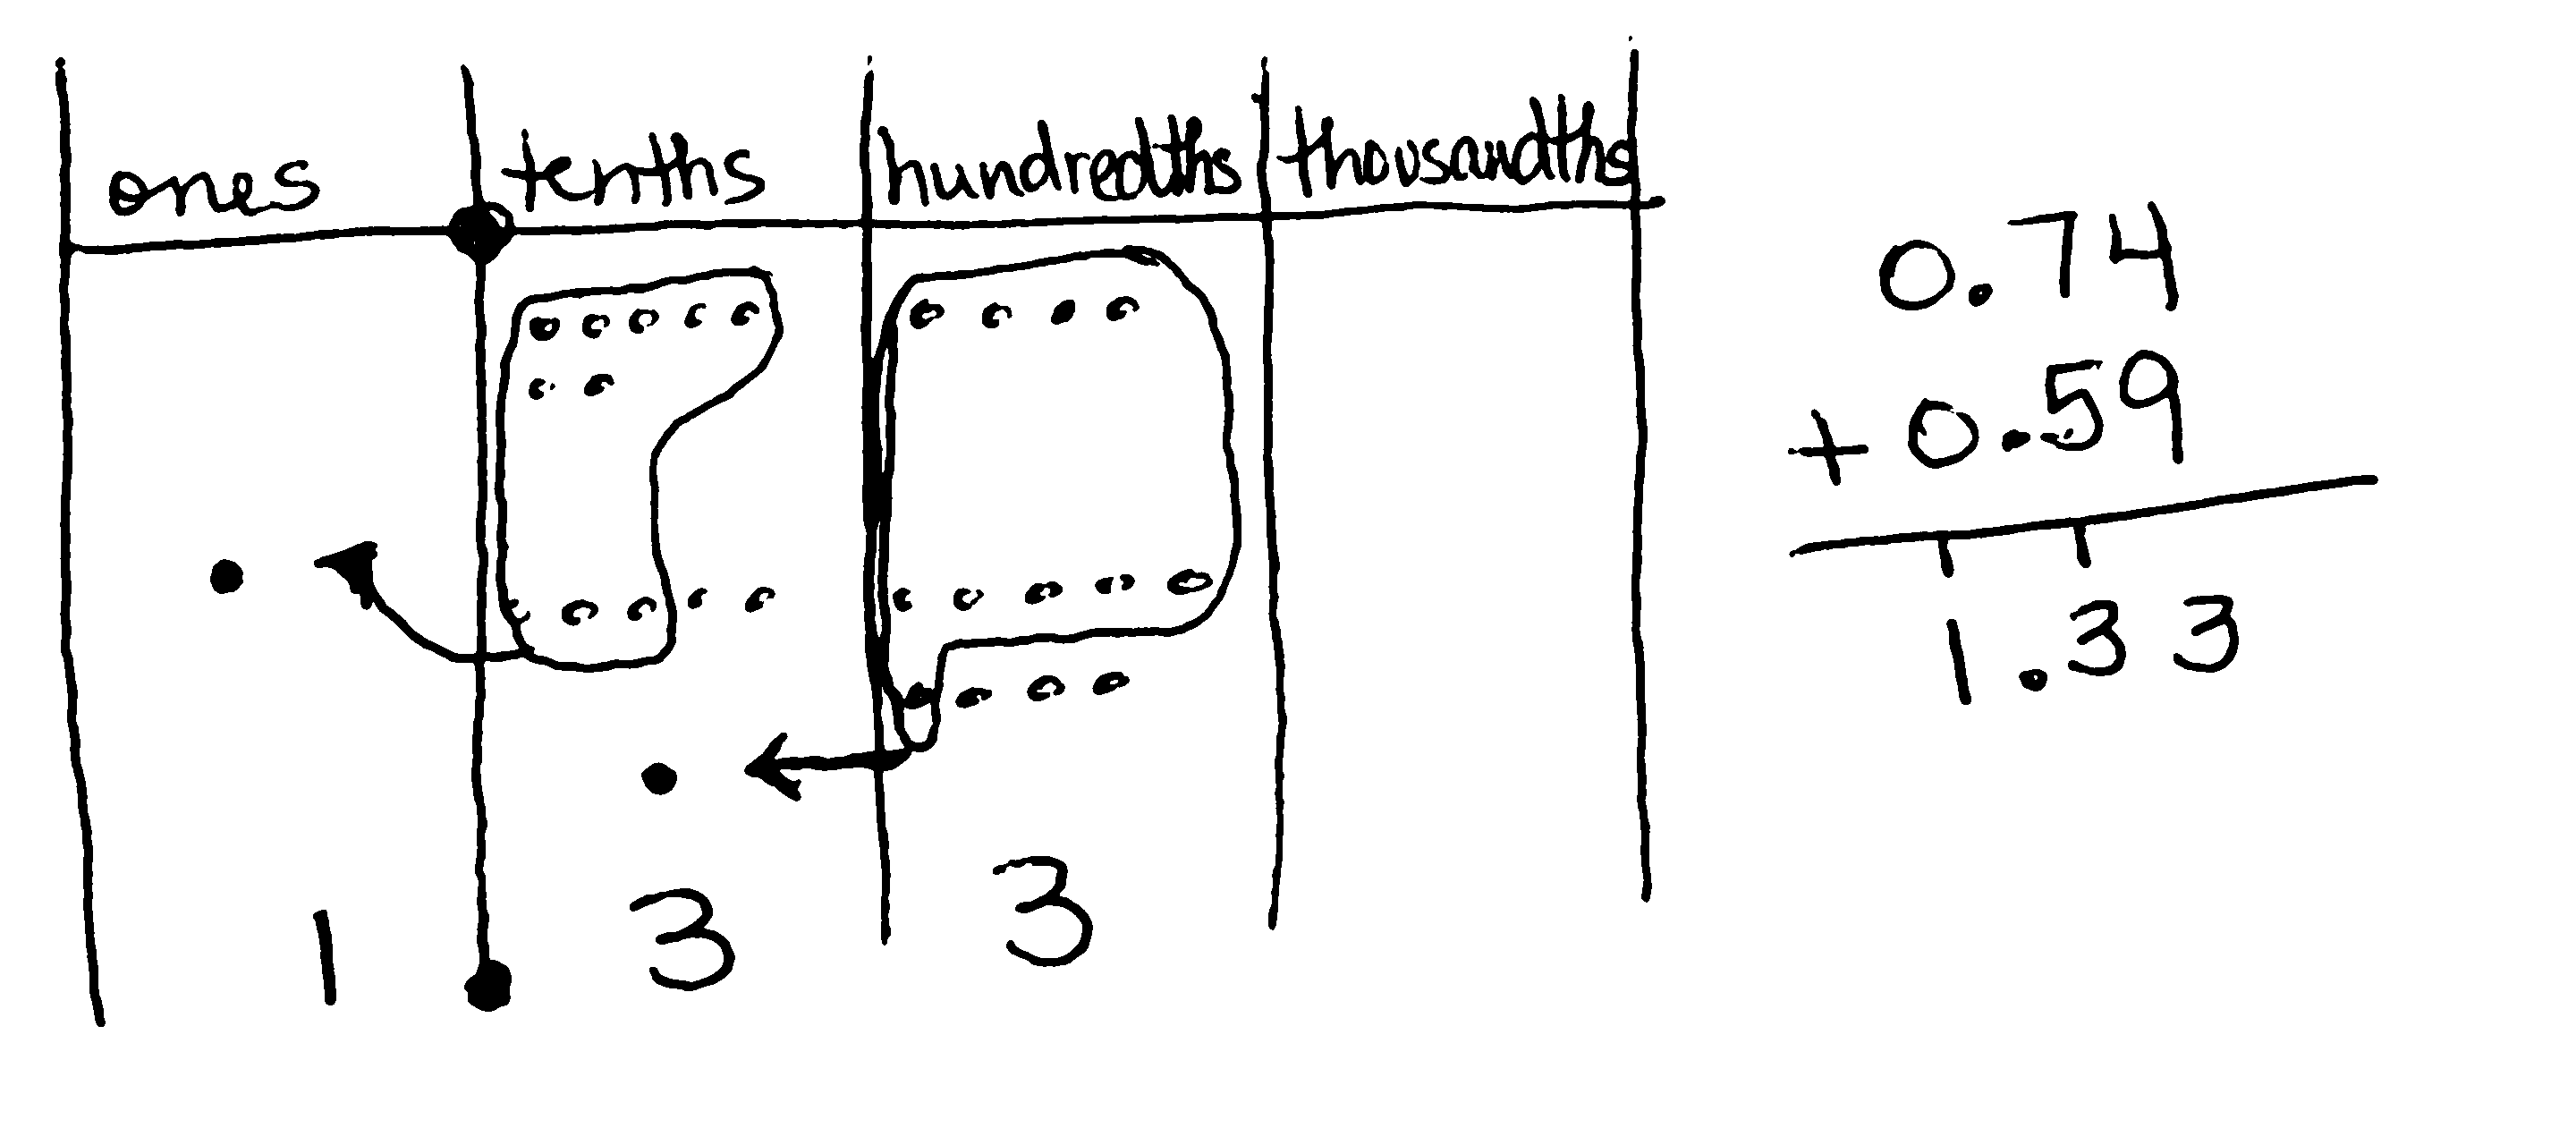 ones tenths hundredths thousandths
0.74
+ 0.59
1 1
1.33
1 . 3 3